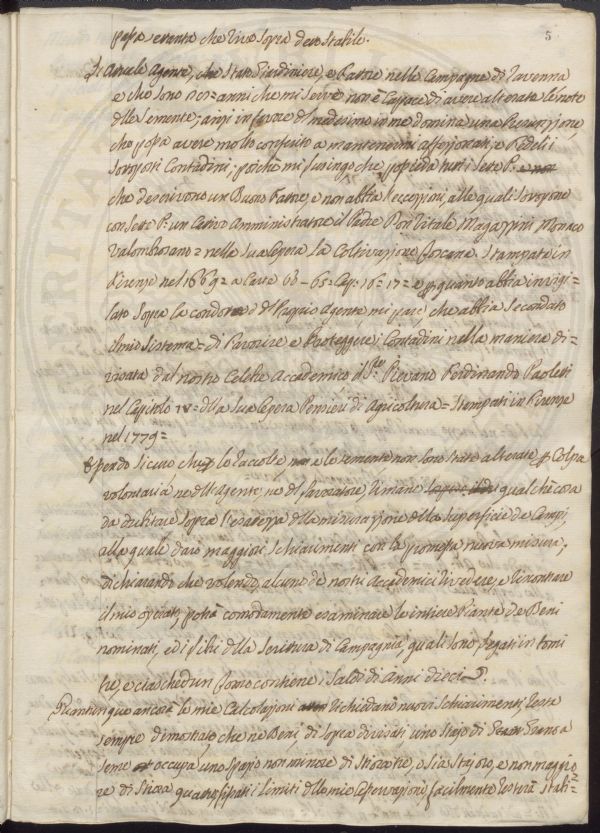 5
possa esenta che vive sopra detto Stabile.
Il Attuale Agente, che è stato Giardiniere, e Fattore nelle Campagne di Ravenna
e che sono anni che mi serve non è capace di avere alterate le note
della semente; anzi in favore del medesimo in me domina una Prevenzione
che possa avere molto conferito a mantenermi affezionati, e Fedeli i
sottoposti Contadini; poiché mi lusingo che possieda tutti i sette P.
che descrivono un Buon Fattore, e non abbia l'eccezioni, alle quali sottopone
con sette P. un Cattivo Amministratore il Padre Don Vitale Magazzini Monaco
Valombrosano = nella sua Opera la Coltivazione Toscana Stampata in
Firenze nel 1669 = a Carte 63 - 65 = Cap: 16: 17 = e per quanto abbia invigi=
lato sopra la condotta del Proprio Agente mi pare, che abbia secondato
il mio sistema = di Favorire e Proteggere i Contadini nella maniera di=
visata dal nostro Celebre Accademico il Sig.re Piovano Ferdinando Paoletti
nel Capitolo IV = della sua Opera Pensieri di Agricoltura = Stampati in Firenze
nel 1779 =
Essendo sicuro che le raccolte e le semente non sono state alterate per Colpa
volontaria né dell'Agente, né del Lavoratore rimane qualche cosa
da dubitare sopra l'esatezza della misurazione della superficie de Campi,
alla quale darò maggiori schiarimenti con la promessa nuova misura;
dichiarando che volendo, alcuno de nostri Accademici rivedere, e riscontrare
il mio operato, potrà comodamente esaminare le intiere Piante de Beni
nominati, ed i Libri della Scrittura di Campagna, quali sono legati in tomi
tre, e ciaschedun tomo contiene i Saldi di Anni dieci.
Quantunque ancora le mie Calcolazioni richiedano nuovi schiarimenti, resta
sempre dimostrato, che ne Beni di sopra divisati uno stajo di Grano a
seme occupa uno spazio non minore di Stiora tre, o sia Stajoro, e non maggio=
re di Stiora quattro fissati i limiti delle mie Osservazioni facilmente resterà stabi=